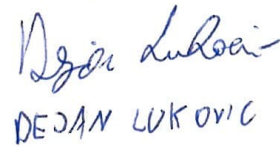 Dejan Luković
DEJAN LUKOVIC